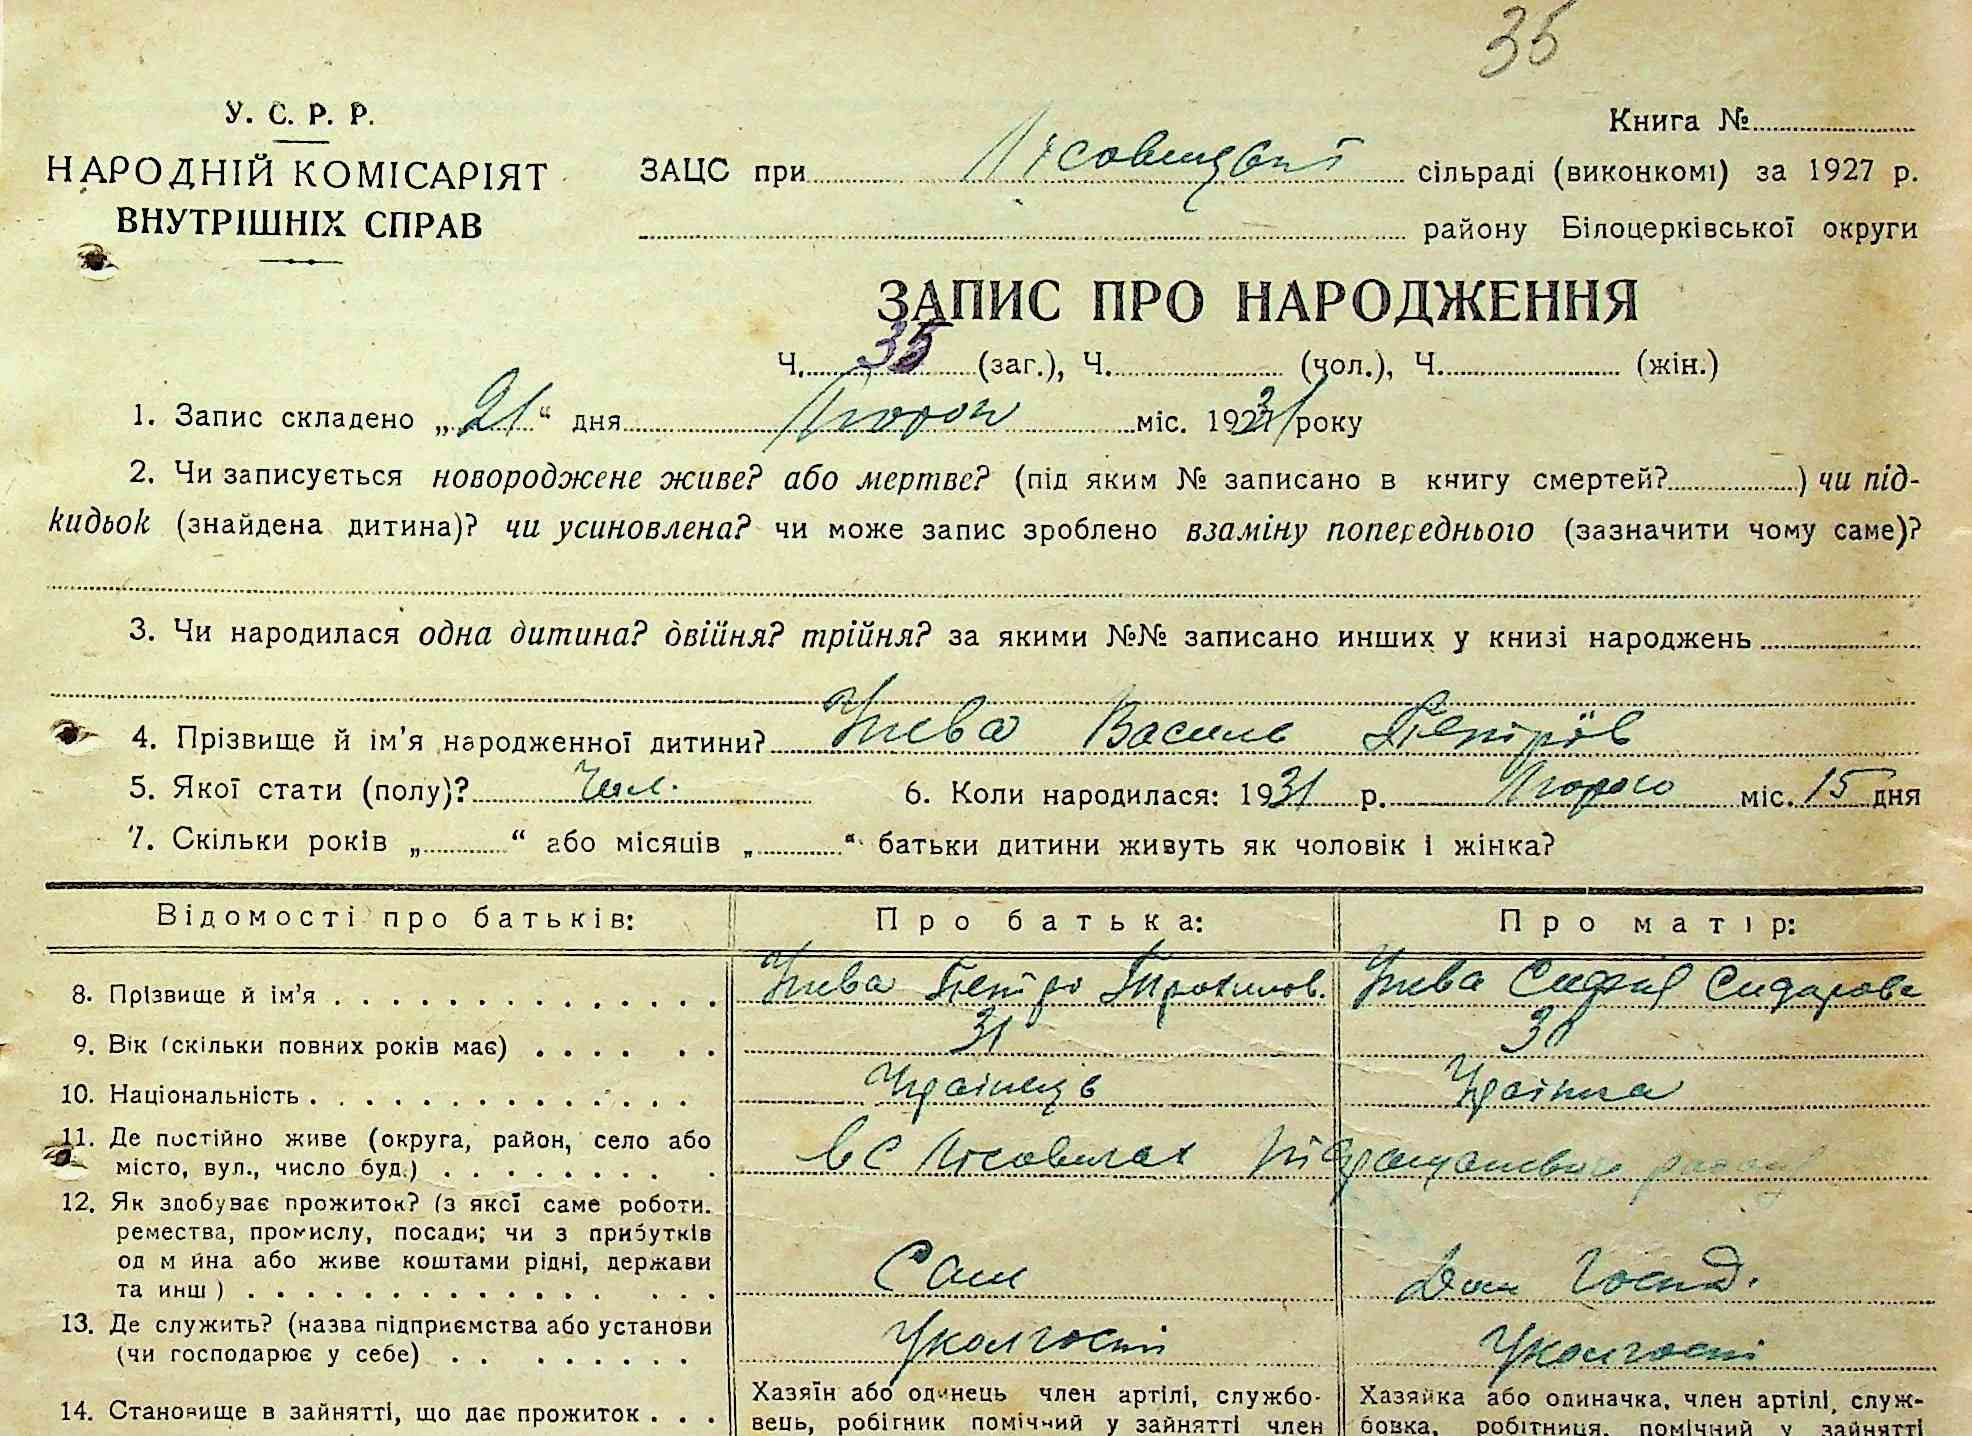 35
У. С. Р. Р.
НАРОДНІЙ КОМІСАРІЯТ
ВНУТРІШНІХ СПРАВ
Книга №
ЗАЦС при сільраді (виконкомі) за 1927 р.
району Білоцерківської округи
ЗАПИС ПРО НАРОДЖЕННЯ
Ч. 35 (заг.), Ч. (чол.), Ч. (жін.)
1. Запис складено „21“ дня міс. 1931 року
2. Чи записується новороджене живе? або мертве? (під яким № записано в книгу смертей? ) чи під-
кидьок (знайдена дитина)? чи усиновлена? чи може запис зроблено взаміну попереднього (зазначити чому саме)?
3. Чи народилася одна дитина? двійня? трійня? за якими №№ записано инших у книзі народжень
4. Прізвище й ім'я народженної дитини? Василь Петрів
5. Якої стати (полу)? Чол. 6. Коли народилася: 1931 р. Лютого міс. 15 дня
7. Скільки років „ “ або місяців „ “ батьки дитини живуть як чоловік і жінка?
Відомості про батьків: Про батька: Про матір:
8. Прізвище й ім'я Петро Сидорова
9. Вік (скільки повних років має) 31
10. Національність Українець Українка
11. Де постійно живе (округа, район, село або
місто, вул., число буд.) в с Лісовичах району
12. Як здобуває прожиток? (з якої саме роботи.
ремества, промислу, посади; чи з прибутків
од майна або живе коштами рідні, держави
та инш) Сам Дом Господ.
13. Де служить? (назва підприємства або установи
(чи господарює у себе) Уколгоспі Уколгоспі
14. Становище в зайнятті, що дає прожиток
Хазяїн або одинець член артілі, службо-
вець, робітник помічний у зайнятті член
Хазяйка або одиначка, член артілі, служ-
бовка, робітниця, помічний у зайнятті